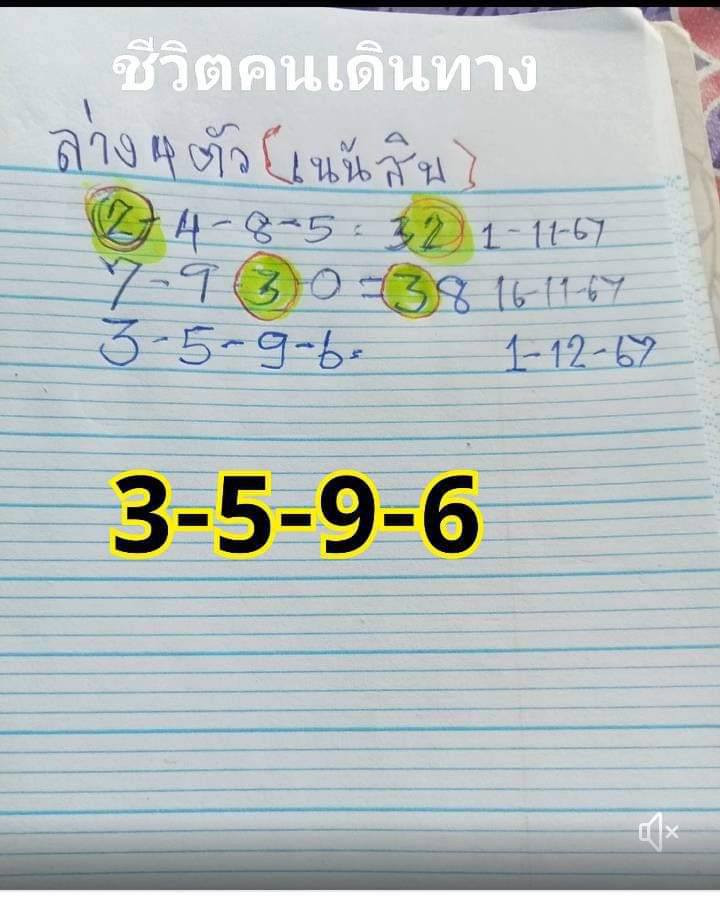 ชีวิตคนเดินทาง
ล่าง 4 ตัว (เน้นสิบ)
2-4-8-5 = 32 1-11-67
7-9-3-0 = 38 16-11-67
3-5-9-6= 1-12-67
3-5-9-6